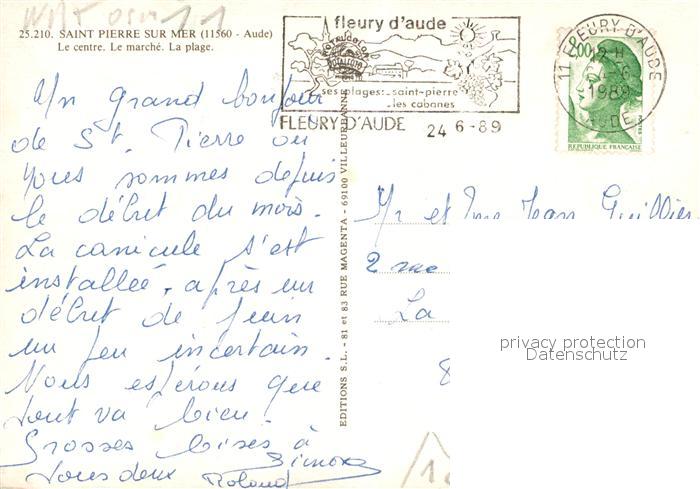 25.210. SAINT PIERRE SUR MER (11560 - Aude)
Le centre. Le marché. La plage.
fleury d'aude
ses plages: saint-pierre
les cabanes
FLEURY D'AUDE 24 6-89
11 FLEURY D'AUDE
1989
AUDE
2,00
POSTES
REPUBLIQUE FRANÇAISE
Un grand bonjour
de St. Pierre où
nous sommes depuis
le début du mois.
La canicule s'est
installée, après un
début de juin
un peu incertain.
Nous espérons que
tout va bien.
Grosses bises à
tous deux
Simone
Roland
EDITIONS S.L. - 81 et 83 RUE MAGENTA - 69100 VILLEURBANNE
Mr et Mme Jean
2 rue
La
8
privacy protection
Datenschutz